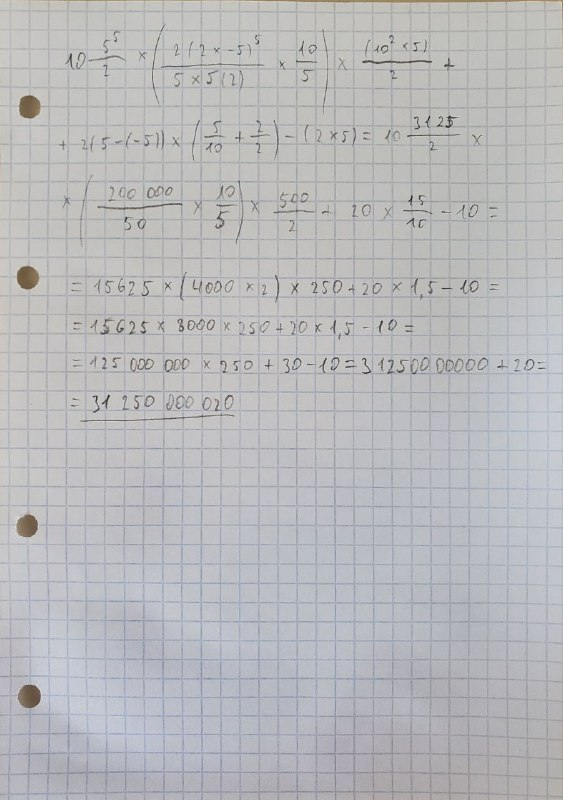 10 5⁵/2 × (2(2×-5)⁵/5×5(2) × 10/5) × (10²×5)/2 +
+ 2(5-(-5)) × (5/10 + 2/2) - (2×5) = 10 3125/2 ×
× (200 000/50 × 10/5) × 500/2 + 20 × 15/10 - 10 =
= 15625 × (4000 × 2) × 250 + 20 × 1,5 - 10 =
= 15625 × 8000 × 250 + 20 × 1,5 - 10 =
= 125 000 000 × 250 + 30 - 10 = 31250000000 + 20 =
= 31 250 000 020